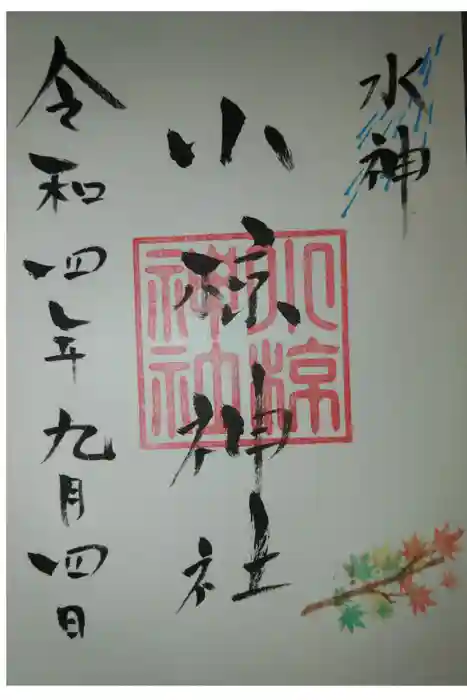 水神
小凉神社
令和四年九月四日
小凉
神社